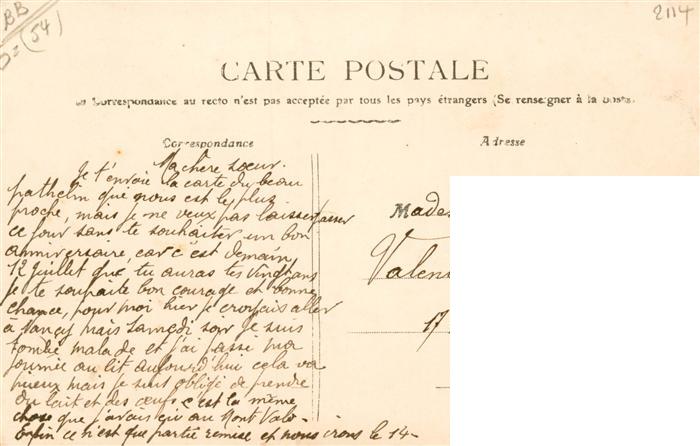 BB
D = (54)
2114
CARTE POSTALE
La Correspondance au recto n'est pas acceptée par tous les pays étrangers (Se renseigner à la Poste)
Correspondance
Adresse
Ma chère soeur.
Je t'envoie la carte du beau
pathelin que nous est le plus
proche, mais je ne veux pas laisser passer
ce jour sans te souhaiter un bon
anniversaire, car c'est demain
12 juillet que tu auras tes vingt ans
je te souhaite bon courage et bonne
chance, pour moi hier je croyais aller
à Nancy mais Samedi soir je suis
tombé malade et j'ai passé ma
journée au lit aujourd'hui cela va
mieux mais je suis obligé de prendre
du lait et des oeufs c'est la même
chose que j'avais eu au Mont Valé-
Enfin ce n'est que partie remise et nous irons le 14-
Made
Valen
17